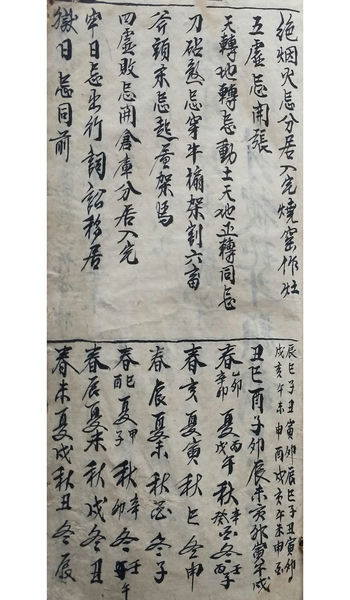 絶烟火忌分居入宅燒窑作灶
五虛忌開張
天轉地轉忌動土天地正轉同忌
刀砧殺忌穿牛搧架割六畜
斧頭未忌起屋架馬
四虛敗忌開倉庫分居入宅
牢日忌出行詞訟移居
獄日忌同前
辰巳子丑寅卯辰巳子丑寅卯
戌亥午未申酉戌亥午未申酉
丑巳酉子卯辰未亥
春乙卯辛卯夏丙午戊午秋辛酉癸酉冬壬子丙子
春亥夏寅秋巳冬申
春辰夏未秋酉冬子
春巳酉夏甲子秋辛卯冬壬午
春辰夏未秋戌冬丑
春未夏戌秋丑冬辰